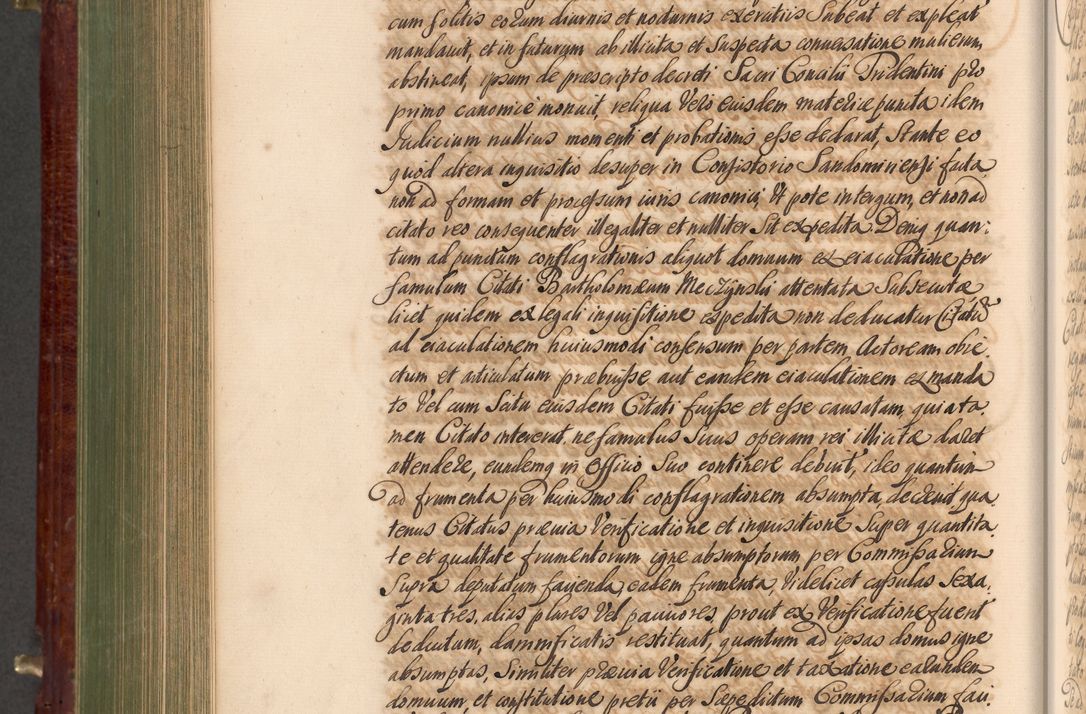 cum solitis eorum diurnis et nocturnis exercitiis subeat et expleat
mandavit, et in futurum ab illicita et suspecta conversatione mulierum
abstineat, ipsum de præscripto decreti Sacri Concilii Tridentini pro
primo canonice monuit, reliqua vero eiusdem materiæ puncta idem
Iudicium nullius momenti et probationis esse declarat, Stante eo
quod altera inquisitio desuper in Consistorio Sandomiriensi facta
non ad formam et processum iuris canonici Ut pote intergum, et non ad
citato reo consequenter illegaliter et nulliter sit expedita Deniq quan:
tum ad punctum conflagrationis aliquot domuum ex eiaculatione per
famulum Citati Bartholomæum Meczynski attentata Subsecutæ
licet quidem ex legali inquisitione expedita non deducatur Citatū
ad eiaculationem huiusmodi consensum per partem Actoream obie
ctum et articulatum præbuisse aut eandem eiaculationem ex manda
to Vel cum Scitu eiusdem Citati fuisse et esse causatam, quia ta
men Citato intererat, ne famulus suus operam rei illicitæ daret
attendere, eundemq in officio Suo continere debuit, ideo quantum
ad frumenta per huiusmodi conflagrationem absumpta, decrevit qua
tenus Citatus prævia Verificatione et inquisitione Super quantita
te et qualitate frumentorum igne absumptorum per Commissarium
Supra deputatum facienda, eadem frumenta, Videlicet capulas Sexa
ginta tres, alias plures Vel pauciores, prout ex Verificatione fuerit
deductum, damnificatis restituat, quantum ad ipsas domus igne
absumptas, Similiter prævia Verificatione et taxatione earundem
domuum, et constitutione pretii per Sæpedictum Commissarium faci